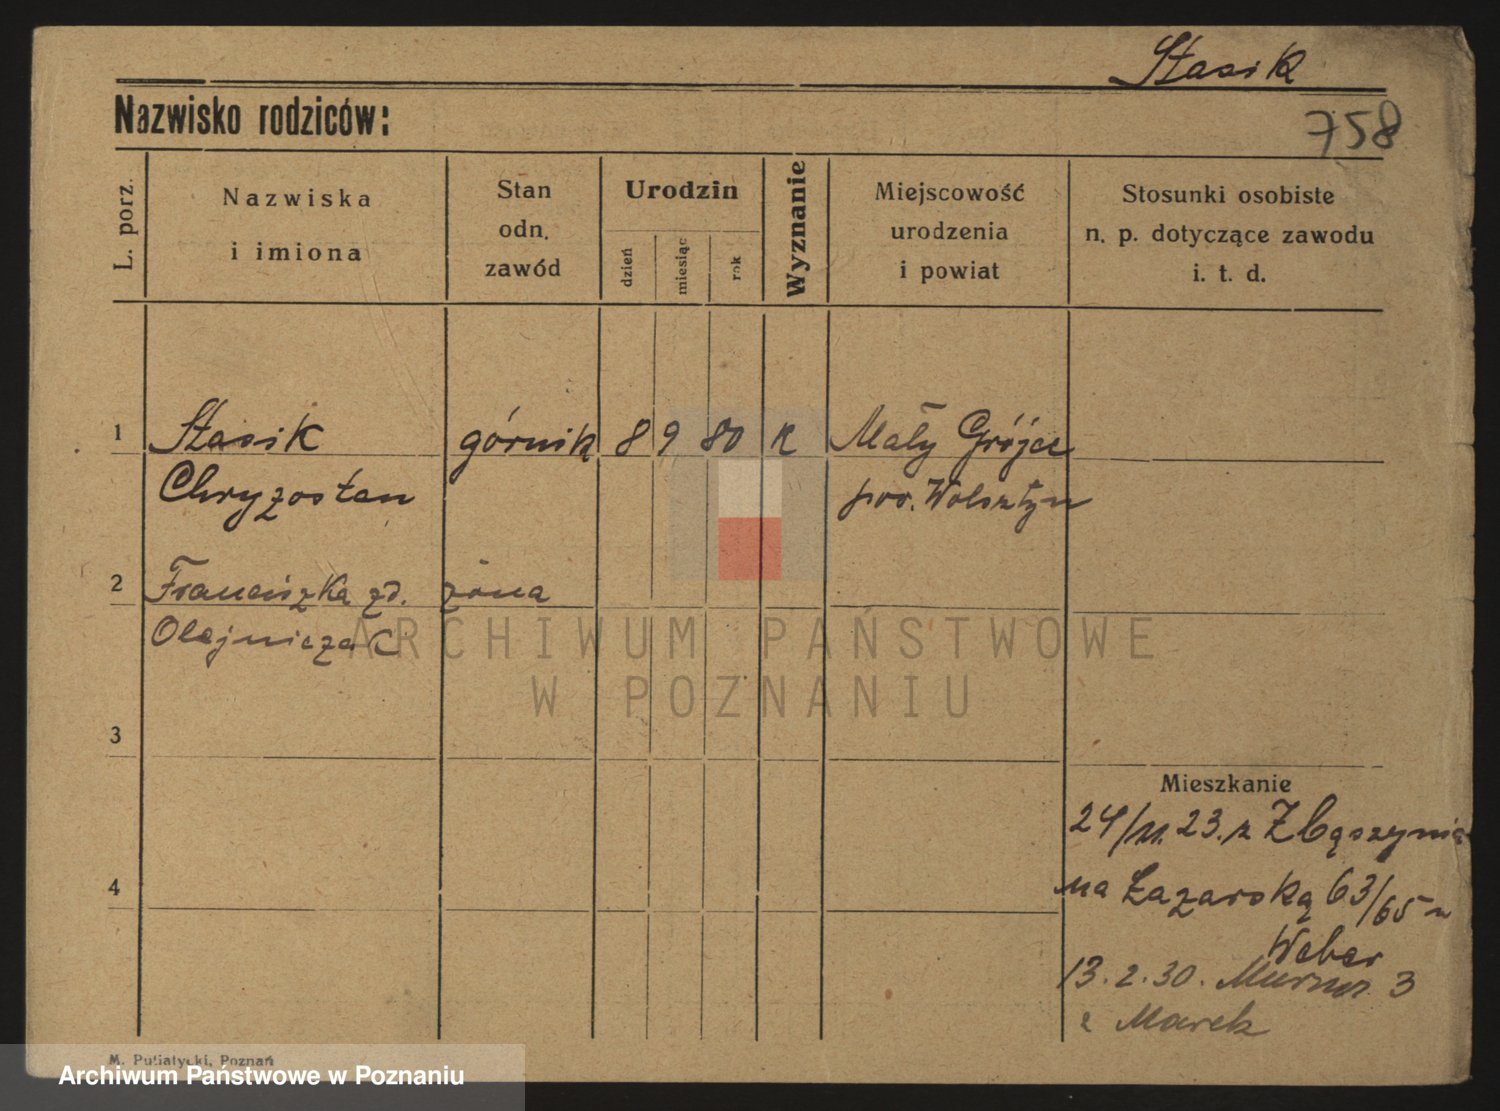 Stasik
Nazwisko rodziców:
758
L. porz.
Nazwiska
i imiona
Stan
odn.
zawód
Urodzin
dzień
miesiąc
rok
Wyznanie
Miejscowość
urodzenia
i powiat
Stosunki osobiste
n. p. dotyczące zawodu
i. t. d.
1 Stasik górnik 8 9 80 k Mały Grójec
Chryzostan pow. Wolsztyn
2 Franciszka zd. żona
Olejniczak
ARCHIWUM PAŃSTWOWE
W POZNANIU
3
Mieszkanie
24/11.23. z Zbąszynia
4
na Łazarską 63/65 u
Weber
13.2.30. 3
Marek
M. Putiatycki, Poznań
Archiwum Państwowe w Poznaniu